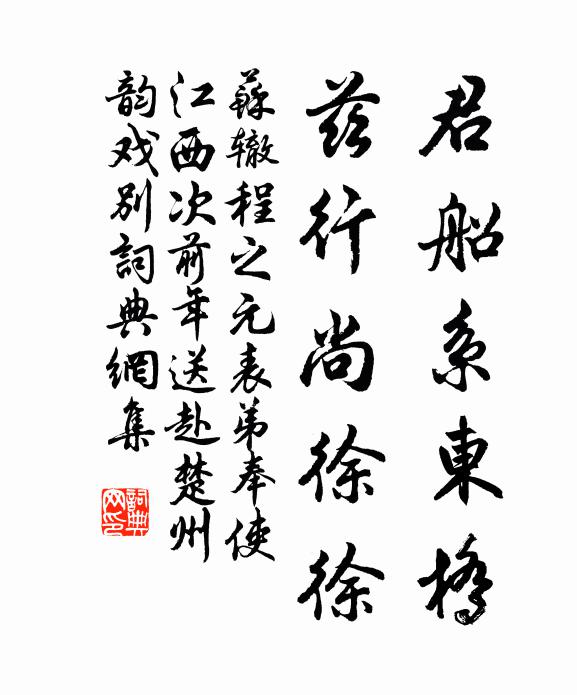 君船系東橋
茲行尚徐徐
蘇辙程之元表弟奉使
江西次前年送赴楚州
韵戏别詞典網集
詞典网印